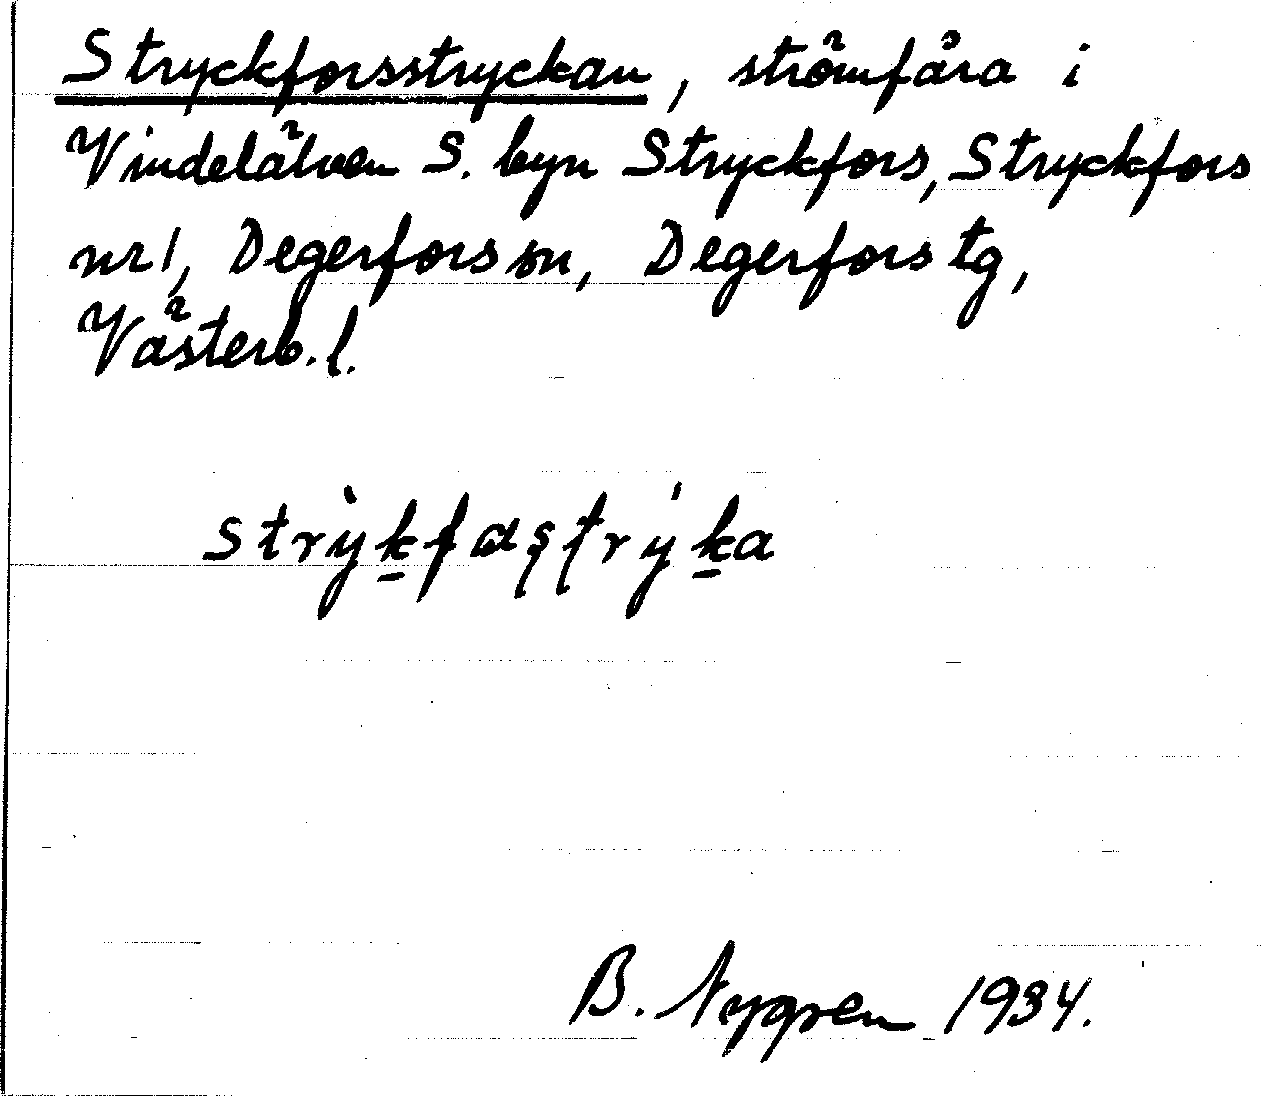 Stryckforsstryckan, strömfåra i
Vindelälven S. byn Stryckfors, Stryckfors
nr 1, Degerfors sn, Degerfors tg,
Västerb. l.
strỳk̲fɑʂʈrýk̲a
B. Nygren 1934.